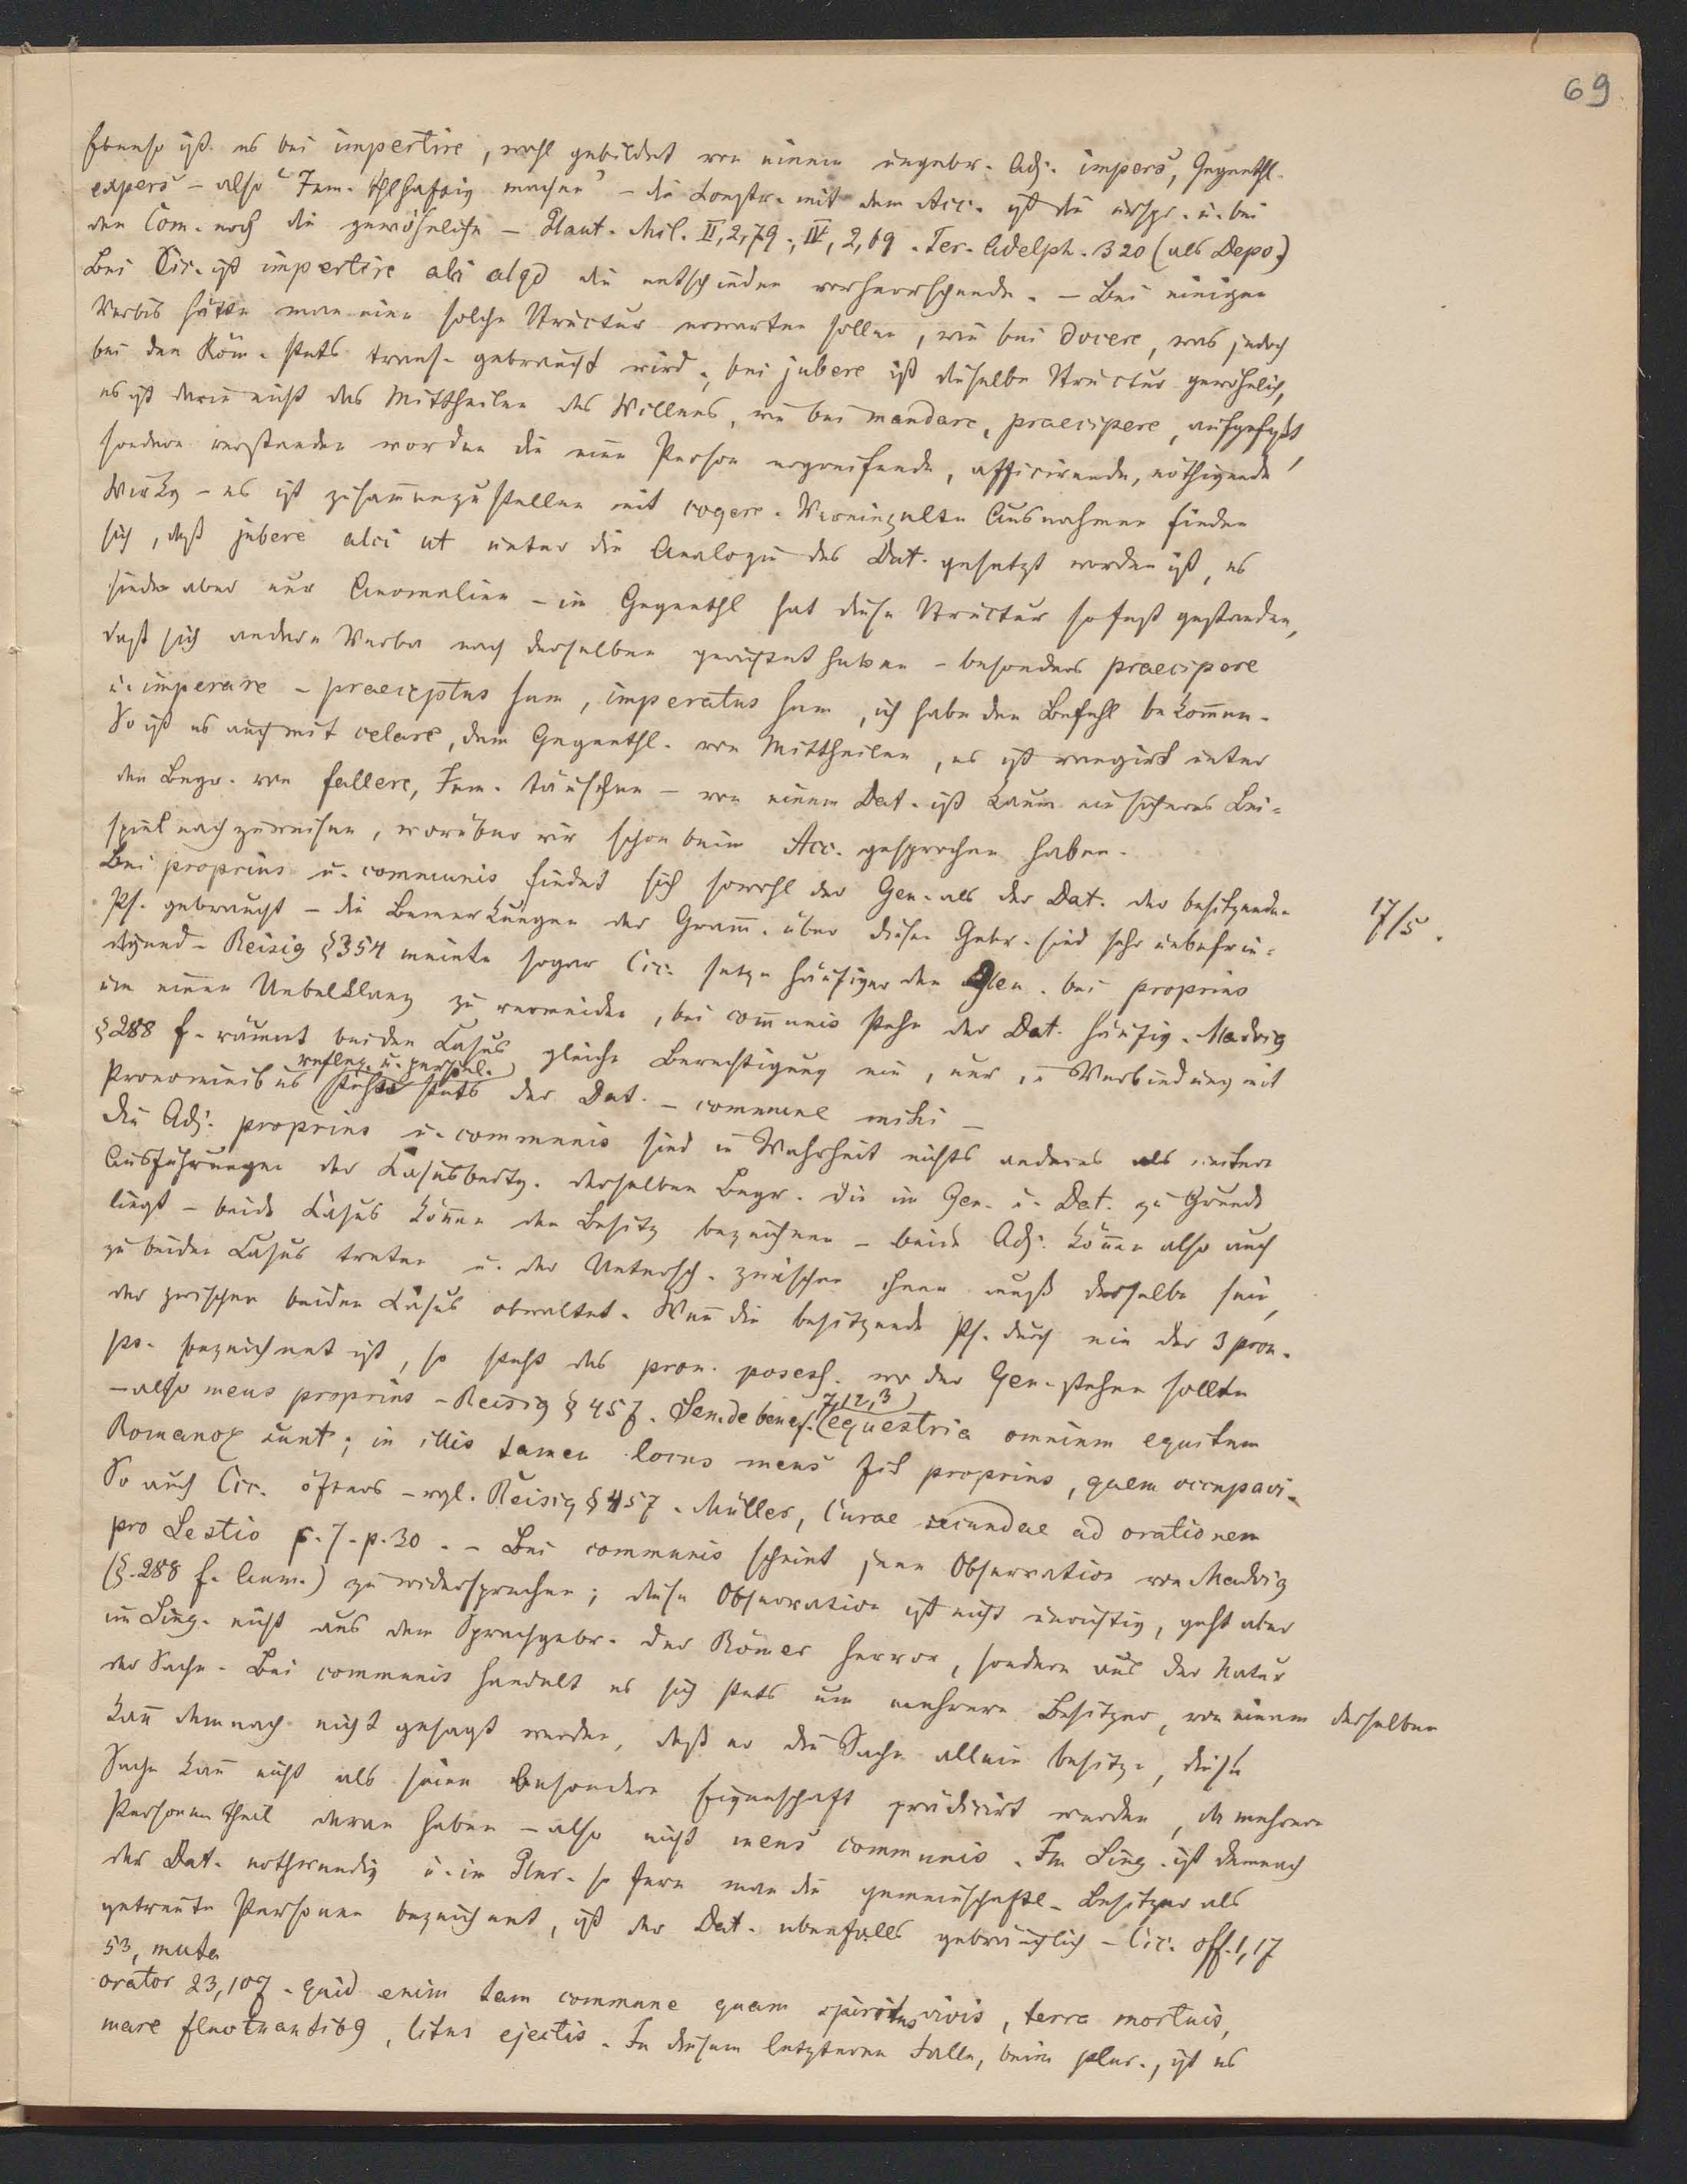 69
Ebenso ist es bei impertire, wohl gebildet von einem ungebr. Adj. impers, Gegenthl.
expers – also "Jem. thlhaftig machen" – die Constr. mit dem Acc. ist die urspr. u. bei
den Com. noch die gewöhnliche – Plaut. Mil. II, 2, 79; IV, 2, 69. Ter. Adelph. 320 (als Depo.)
Bei Cic. ist impertire alci alqd die entschieden vorherrschende. – Bei einigen
Verbis hätte man eine solche Structur erwarten sollen, wie bei docere, was jedoch
bei den Röm. stets trans. gebraucht wird; bei jubere ist dieselbe Structur gewöhnlich,
es ist darin nicht das Mittheilen des Willens, wie bei mandare, praecipere, aufgefaßt,
sondern verstanden worden die eine Person ergreifende, afficirende, nöthigende
Wirkg – es ist zusam̅enzustellen mit cogere. Vereinzelte Ausnahmen finden
sich, daß jubere alci ut unter die Analogie des Dat. gesetzt worden ist, es
sind aber nur Anomalien – im Gegenthl hat diese Structur so fest gestanden,
daß sich andere Verba nach derselben gerichtet haben – besonders praecipere
u. imperare – praeceptus sum, imperatus sum, ich habe den Befehl bekom̅en.
So ist es auch mit celare, dem Gegenthl. von Mittheilen, es ist rangirt unter
den Begr. von fallere, Jem. täuschen – von einem Dat. ist kaum ein sicheres Bei-
spiel nachzuweisen, worüber wir schon beim Acc. gesprochen haben.
Bei proprius u. communis findet sich sowohl der Gen. als der Dat. der besitzenden
17/5.
Ps. gebraucht – die Bemerkungen der Gram̅. über diesen Gebr. sind sehr unbefrie-
digend – Reisig § 354 meinte sogar Cic. setze häufiger den Gen. bei proprius
um einen Uebelklang zu vermeiden, bei com̅unis stehe der Dat. häufig. Madvig
§ 288 f. räumt beiden Casus gleiche Berechtigung ein, nur in Verbindung mit
reflex. u. personl.
Pronominibus steht stets der Dat. – commune mihi –
Die Adj. proprius u. communis sind in Wahrheit nichts anderes als weitere
Ausführungen der Casusbedtg. derselben Begr. die im Gen. u. Dat. zu Grunde
liegt – beide Casus kön̅en den Besitz bezeichnen – beide Adj. kön̅en also auch
zu beiden Casus treten u. der Untersch. zwischen ihnen muß derselbe sein,
der zwischen beiden Casus obwaltet. Wen̅ die besitzende Ps. durch ein der 3 pron.
ps. bezeichnet ist, so steht das pron. possess. wo der Gen. stehen sollte
– also meus proprius – Reisig § 457. Sen. de benef. (7, 12, 3) equestria omnium equitum
Romanor sunt; in illis tamen locus meus fit proprius, quem occupavi.
So auch Cic. öfters – vgl. Reisig § 457. Müller, Curae secundae ad orationem
pro Sestio p. 7. p. 30. – Bei communis scheint jene Observation von Madvig
(§. 288 f. Anm.) zu widersprechen; diese Observation ist nicht unrichtig, geht aber
im Sing. nicht aus dem Sprachgebr. der Römer hervor, sondern aus der Natur
der Sache. Bei communis handelt es sich stets um mehrere Besitzer, von einem derselben
kan̅ demnach nicht gesagt werden, daß er die Sache allein besitze, diese
Sache kan̅ nicht als seine besondere Eigenschaft prädicirt werden, da mehrere
Personen Theil daran haben – also nicht meus communis. Im Sing. ist demnach
der Dat. nothwendig u. im Plur. so fern man die gemeinschaftl. Besitzer als
getrennte Personen bezeichnet, ist der Dat. ebenfalls gebräuchlich – Cic. off. 1, 17
53, multa
orator 23, 107. quid enim tam commune quam spiritus vivis, terra mortuis,
mare fluctuantibus, litus ejectis. In diesem letzteren Falle, beim plur., ist es